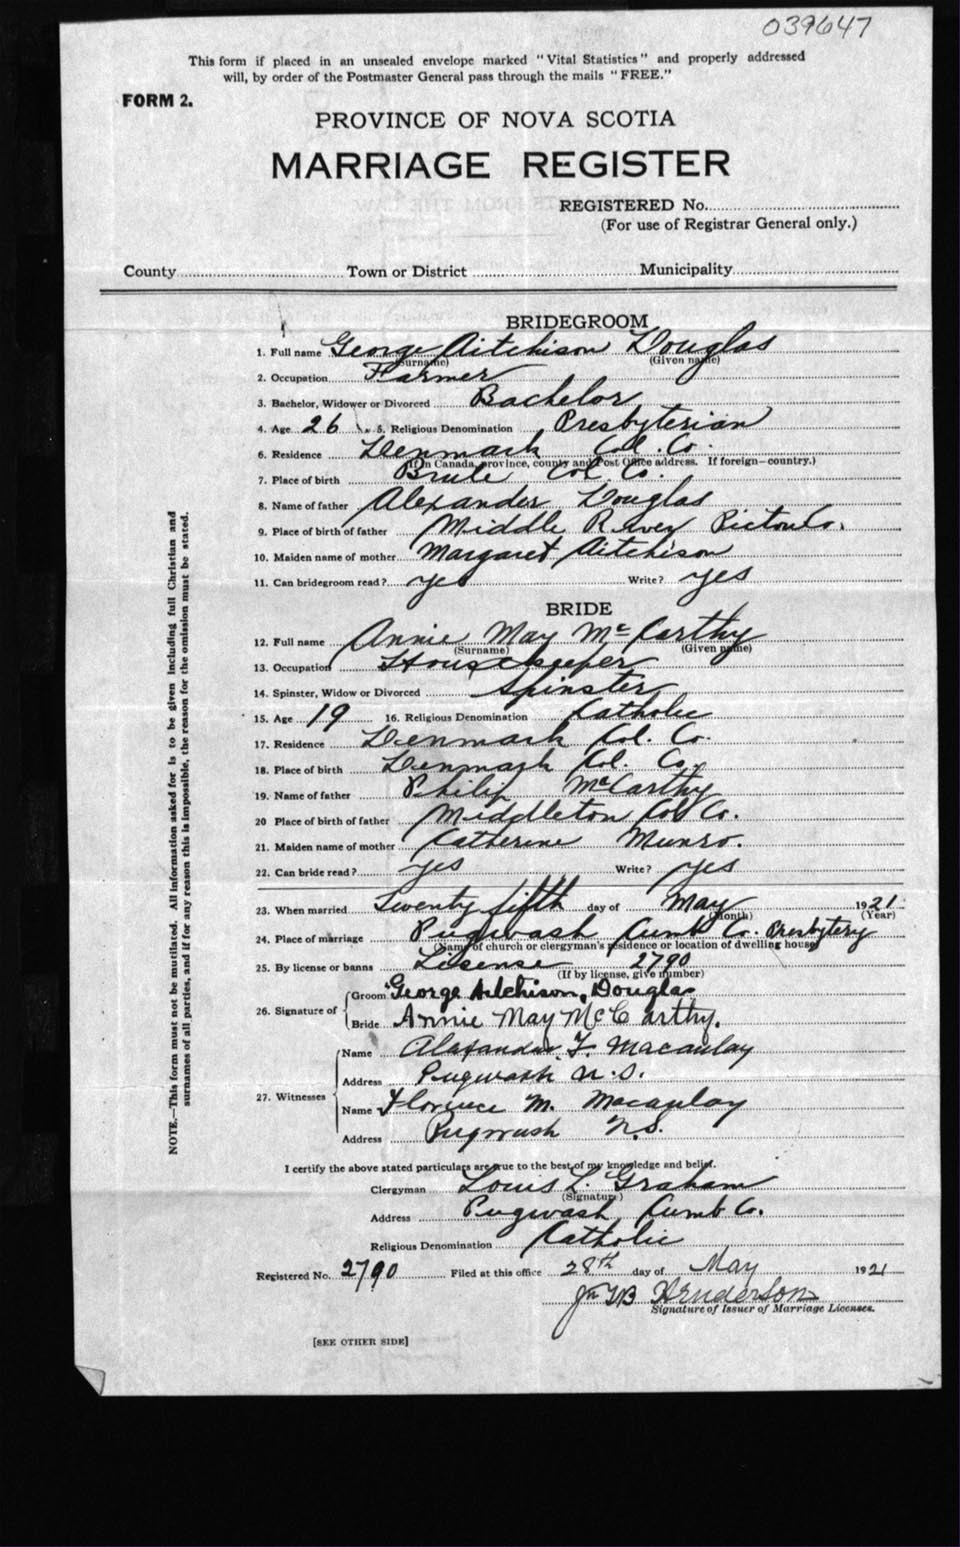 039647
This form if placed in an unsealed envelope marked "Vital Statistics" and properly addressed
will, by order of the Postmaster General pass through the mails "FREE."
FORM 2.
PROVINCE OF NOVA SCOTIA
MARRIAGE REGISTER
REGISTERED No.
(For use of Registrar General only.)
County Town or District Municipality
BRIDEGROOM
1. Full name George Aitchison Douglas
(Surname) (Given name)
2. Occupation Farmer
3. Bachelor, Widower or Divorced Bachelor
4. Age 26 5. Religious Denomination Presbyterian
6. Residence Denmark Col. Co.
(If in Canada, province, county and Post Office address. If foreign—country.)
7. Place of birth Brule Col Co.
8. Name of father Alexander Douglas
9. Place of birth of father Middle River Pictou Co.
10. Maiden name of mother Margaret Aitchison
11. Can bridegroom read? yes Write? yes
BRIDE
12. Full name Annie May McCarthy
(Surname) (Given name)
13. Occupation Housekeeper
14. Spinster, Widow or Divorced Spinster
15. Age 19 16. Religious Denomination Catholic
17. Residence Denmark Col. Co.
18. Place of birth Denmark Col. Co.
19. Name of father Philip McCarthy
20 Place of birth of father Middleton Col Co.
21. Maiden name of mother Catherine Munro.
22. Can bride read? yes Write? yes
23. When married Twenty fifth day of May 1921
(Month) (Year)
24. Place of marriage Pugwash Cumb Co. Presbytery
(Name of church or clergyman's residence or location of dwelling house)
25. By license or banns Lisense 2790
(If by license, give number)
26. Signature of
Groom George Aitchison Douglas
Bride Annie May McCarthy.
27. Witnesses
Name Alexander F. Macaulay
Address Pugwash N.S.
Name Florence M. Macaulay
Address Pugwash N.S.
I certify the above stated particulars are true to the best of my knowledge and belief.
Clergyman Louis L. Graham
(Signature)
Address Pugwash, Cumb Co.
Religious Denomination Catholic
Registered No. 2790 Filed at this office 28th day of May 1921
Henderson
Signature of Issuer of Marriage Licenses.
[SEE OTHER SIDE]
NOTE.—This form must not be mutilated. All information asked for is to be given including full Christian and
surnames of all parties, and if for any reason this is impossible, the reason for the omission must be stated.